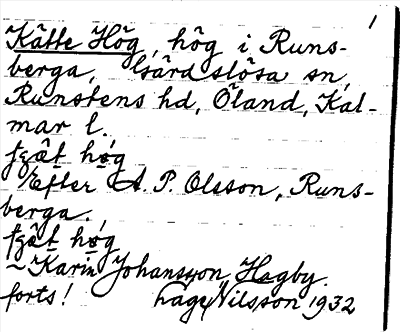 1
Kätte Hög, hög i Runs-
berga, Gärdslösa sn,
Runstens hd, Öland, Kal-
mar l.
Efter A. P. Olsson, Runs-
berga.
~ Karin Johansson, Hagby.
forts! Nilsson 1932